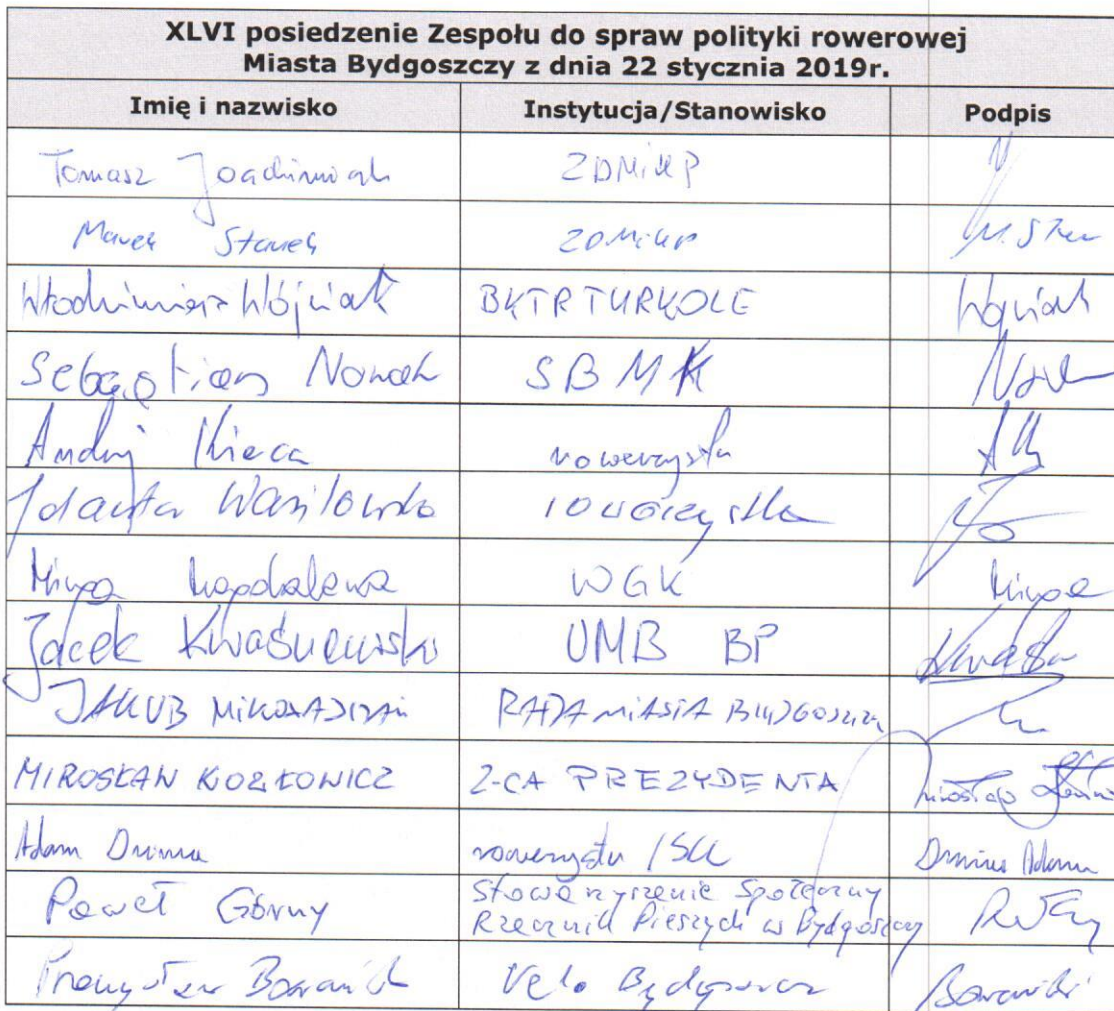 XLVI posiedzenie Zespołu do spraw polityki rowerowej
Miasta Bydgoszczy z dnia 22 stycznia 2019r.
Imię i nazwisko Instytucja/Stanowisko Podpis
Tomasz Joachimiak ZDMiKP
Marek Stanek ZDMiKP
Włodzimierz Wójciak BKTR TURKOLE Wójciak
Sebastian Nowak SBMK
Andrzej rowerzysta
Jolanta Wasilewska rowerzystka
Magdalena WGK
Jacek Kwaśniewski UMB BP
JAKUB MIKOŁAJCZAK RADA MIASTA BYDGOSZCZY
MIROSŁAW KOZŁOWICZ Z-CA PREZYDENTA
Adam rowerzysta Adam
Paweł Górny Stowarzyszenie Społeczny
Rzecznik Pieszych w Bydgoszczy
Przemysław Borowicki Velo Bydgoszcz